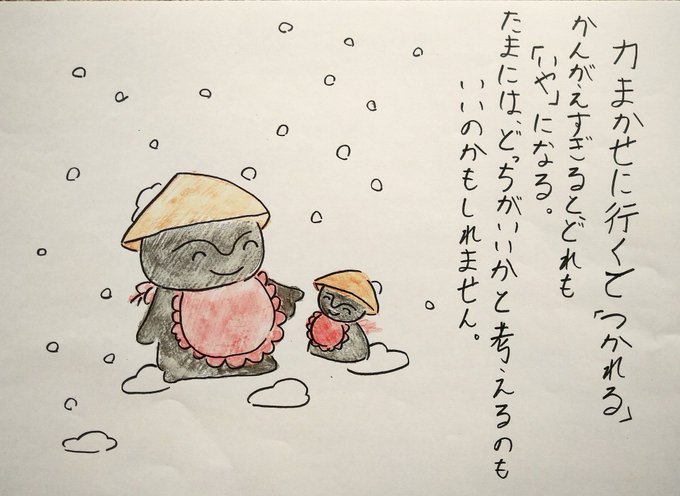 力まかせに行くと「つかれる」
かんがえすぎると、どれも
「いや」になる。
たまには、どっちがいいかと考えるのも
いいのかもしれません。